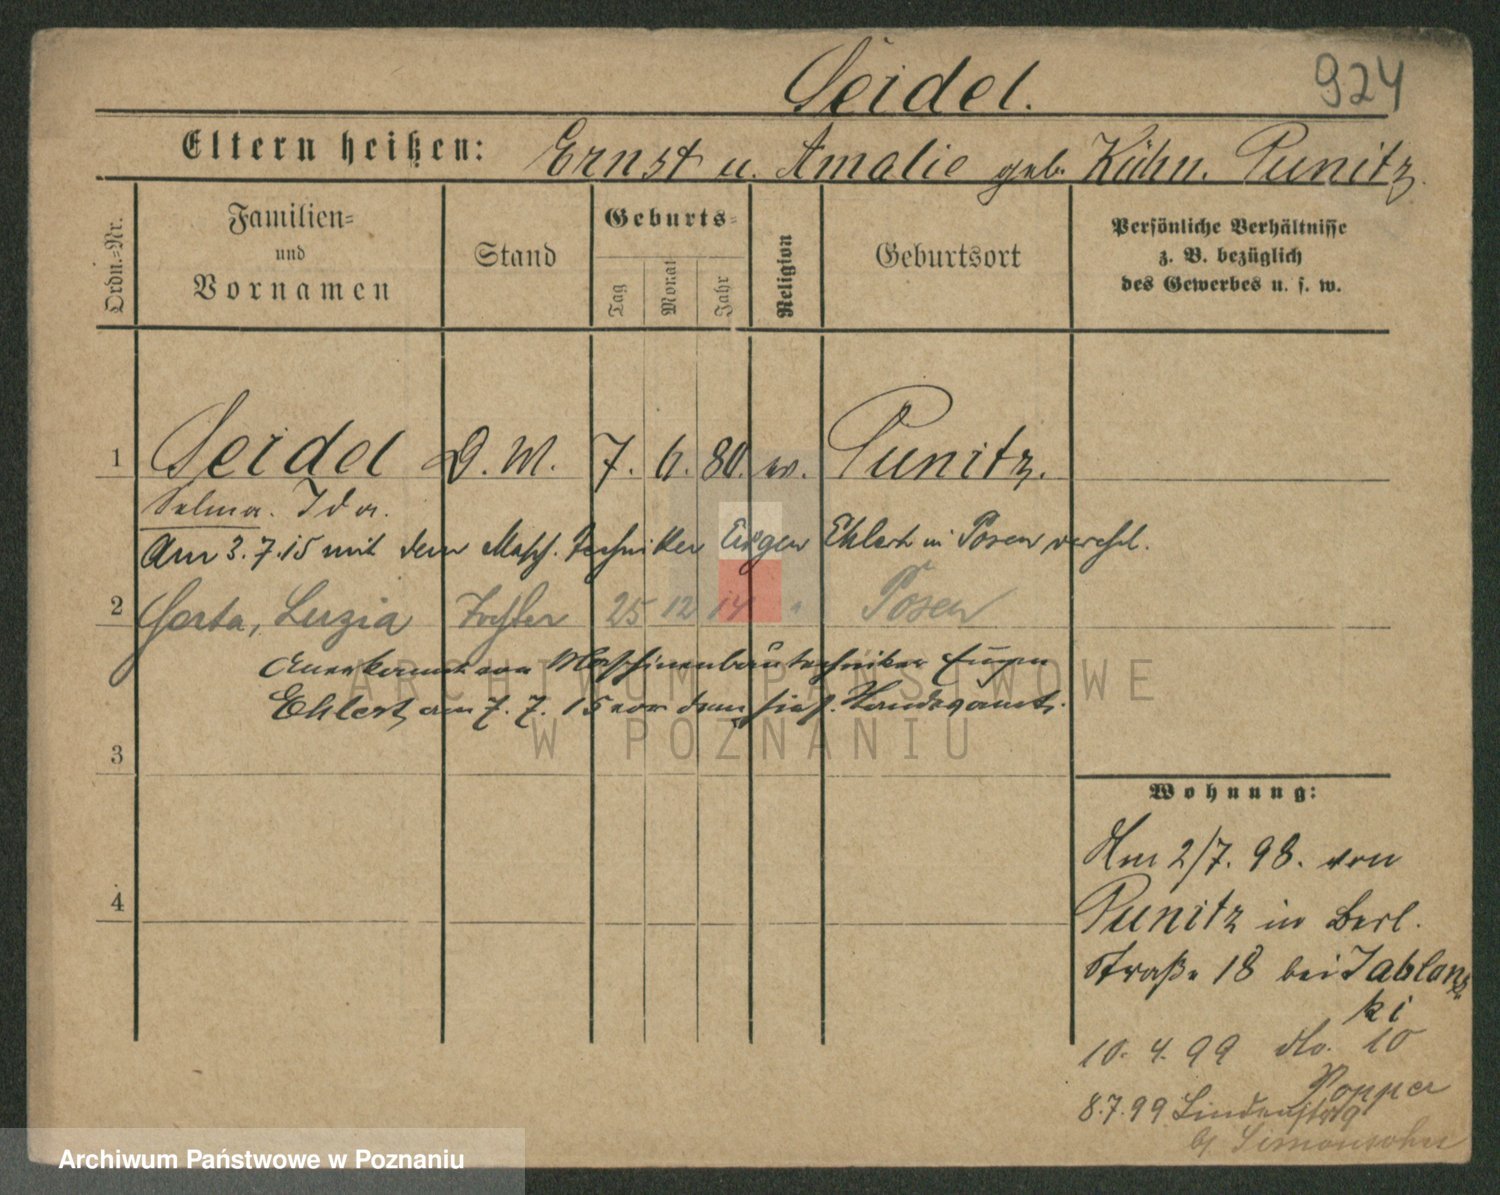 Seidel.
924
Eltern heißen: Ernst u. Amalie geb. Kühn. Punitz.
Ordn.-Nr.
Familien-
und
Vornamen
Stand
Geburts-
Tag
Monat
Jahr
Religion
Geburtsort
Persönliche Verhältnisse
z. B. bezüglich
des Gewerbes u. s. w.
1 Seidel D. M. 7. 6. 80. ev. Punitz.
Selma. Ida.
Am 3.7.15 mit dem Masch. Techniker Eugen Ehlert in Posen verehel.
2 Gerta, Luzia Tochter 25 12 14 " Posen
Anerkannt vom Maschinenbautechniker Eugen
Ehlert am 7. 7. 15 vor dem hies. Standesamte.
3
4
Wohnung:
Am 2/7. 98. von
Punitz in Berl.
Straße 18 bei Jablons
ki
10. 4. 99 do. 10
Popper
8.7.99 Lindenstr 9
b/ Simonsohn
ARCHIWUM PAŃSTWOWE
W POZNANIU
Archiwum Państwowe w Poznaniu